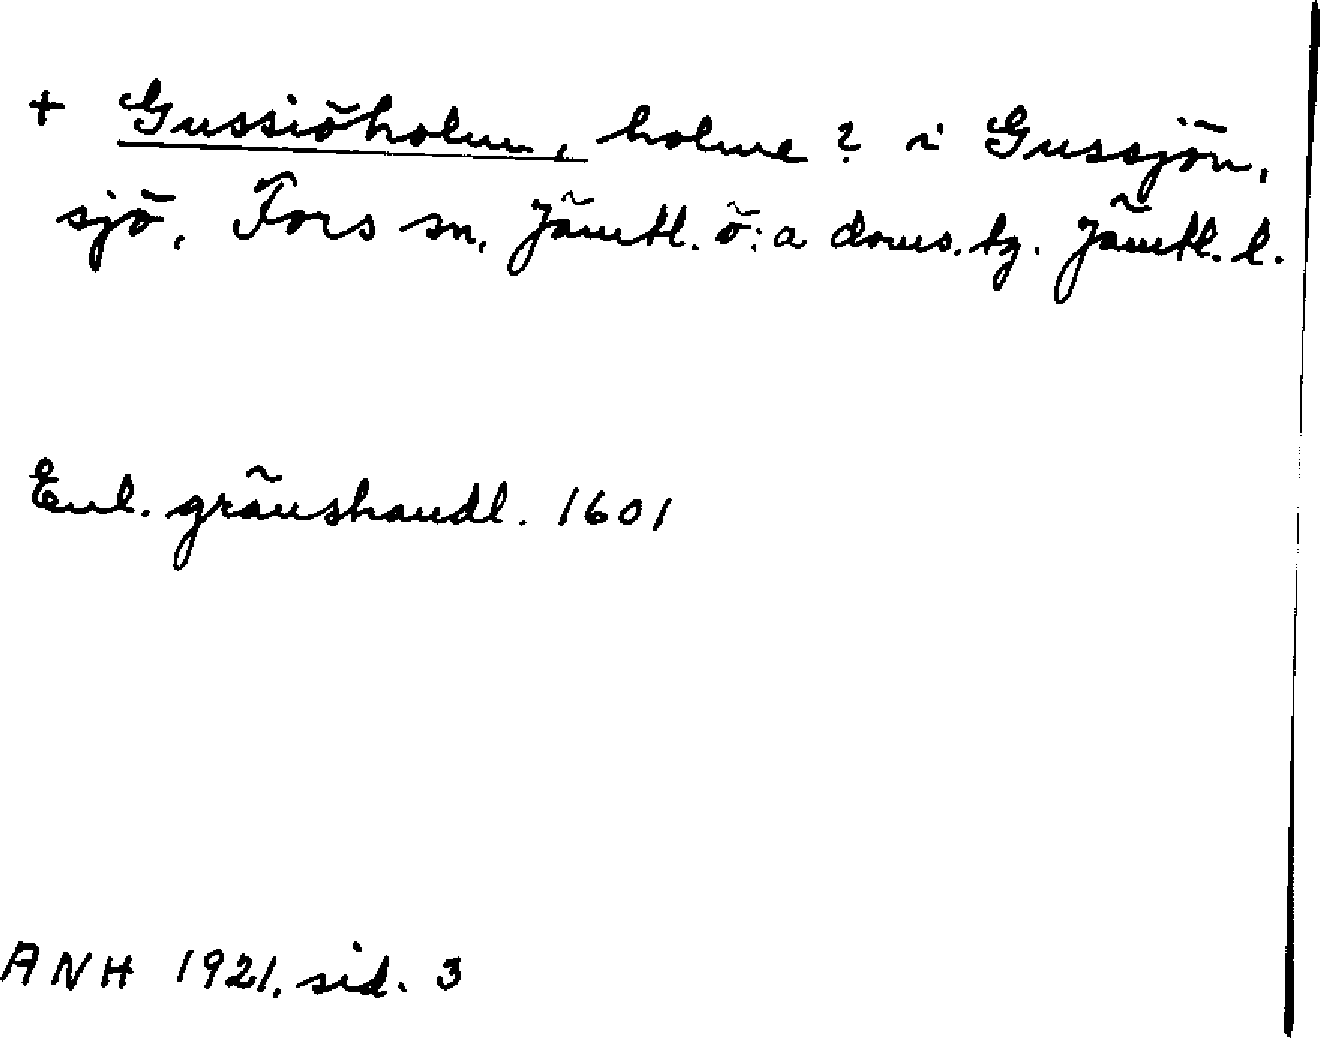 + Gussiöholm, holme? i Gussjön,
sjö, Fors sn, Jämtl. ö:a doms. tg. Jämtl. l.
Enl. gränshandl. 1601
ANH 1921, sid. 3